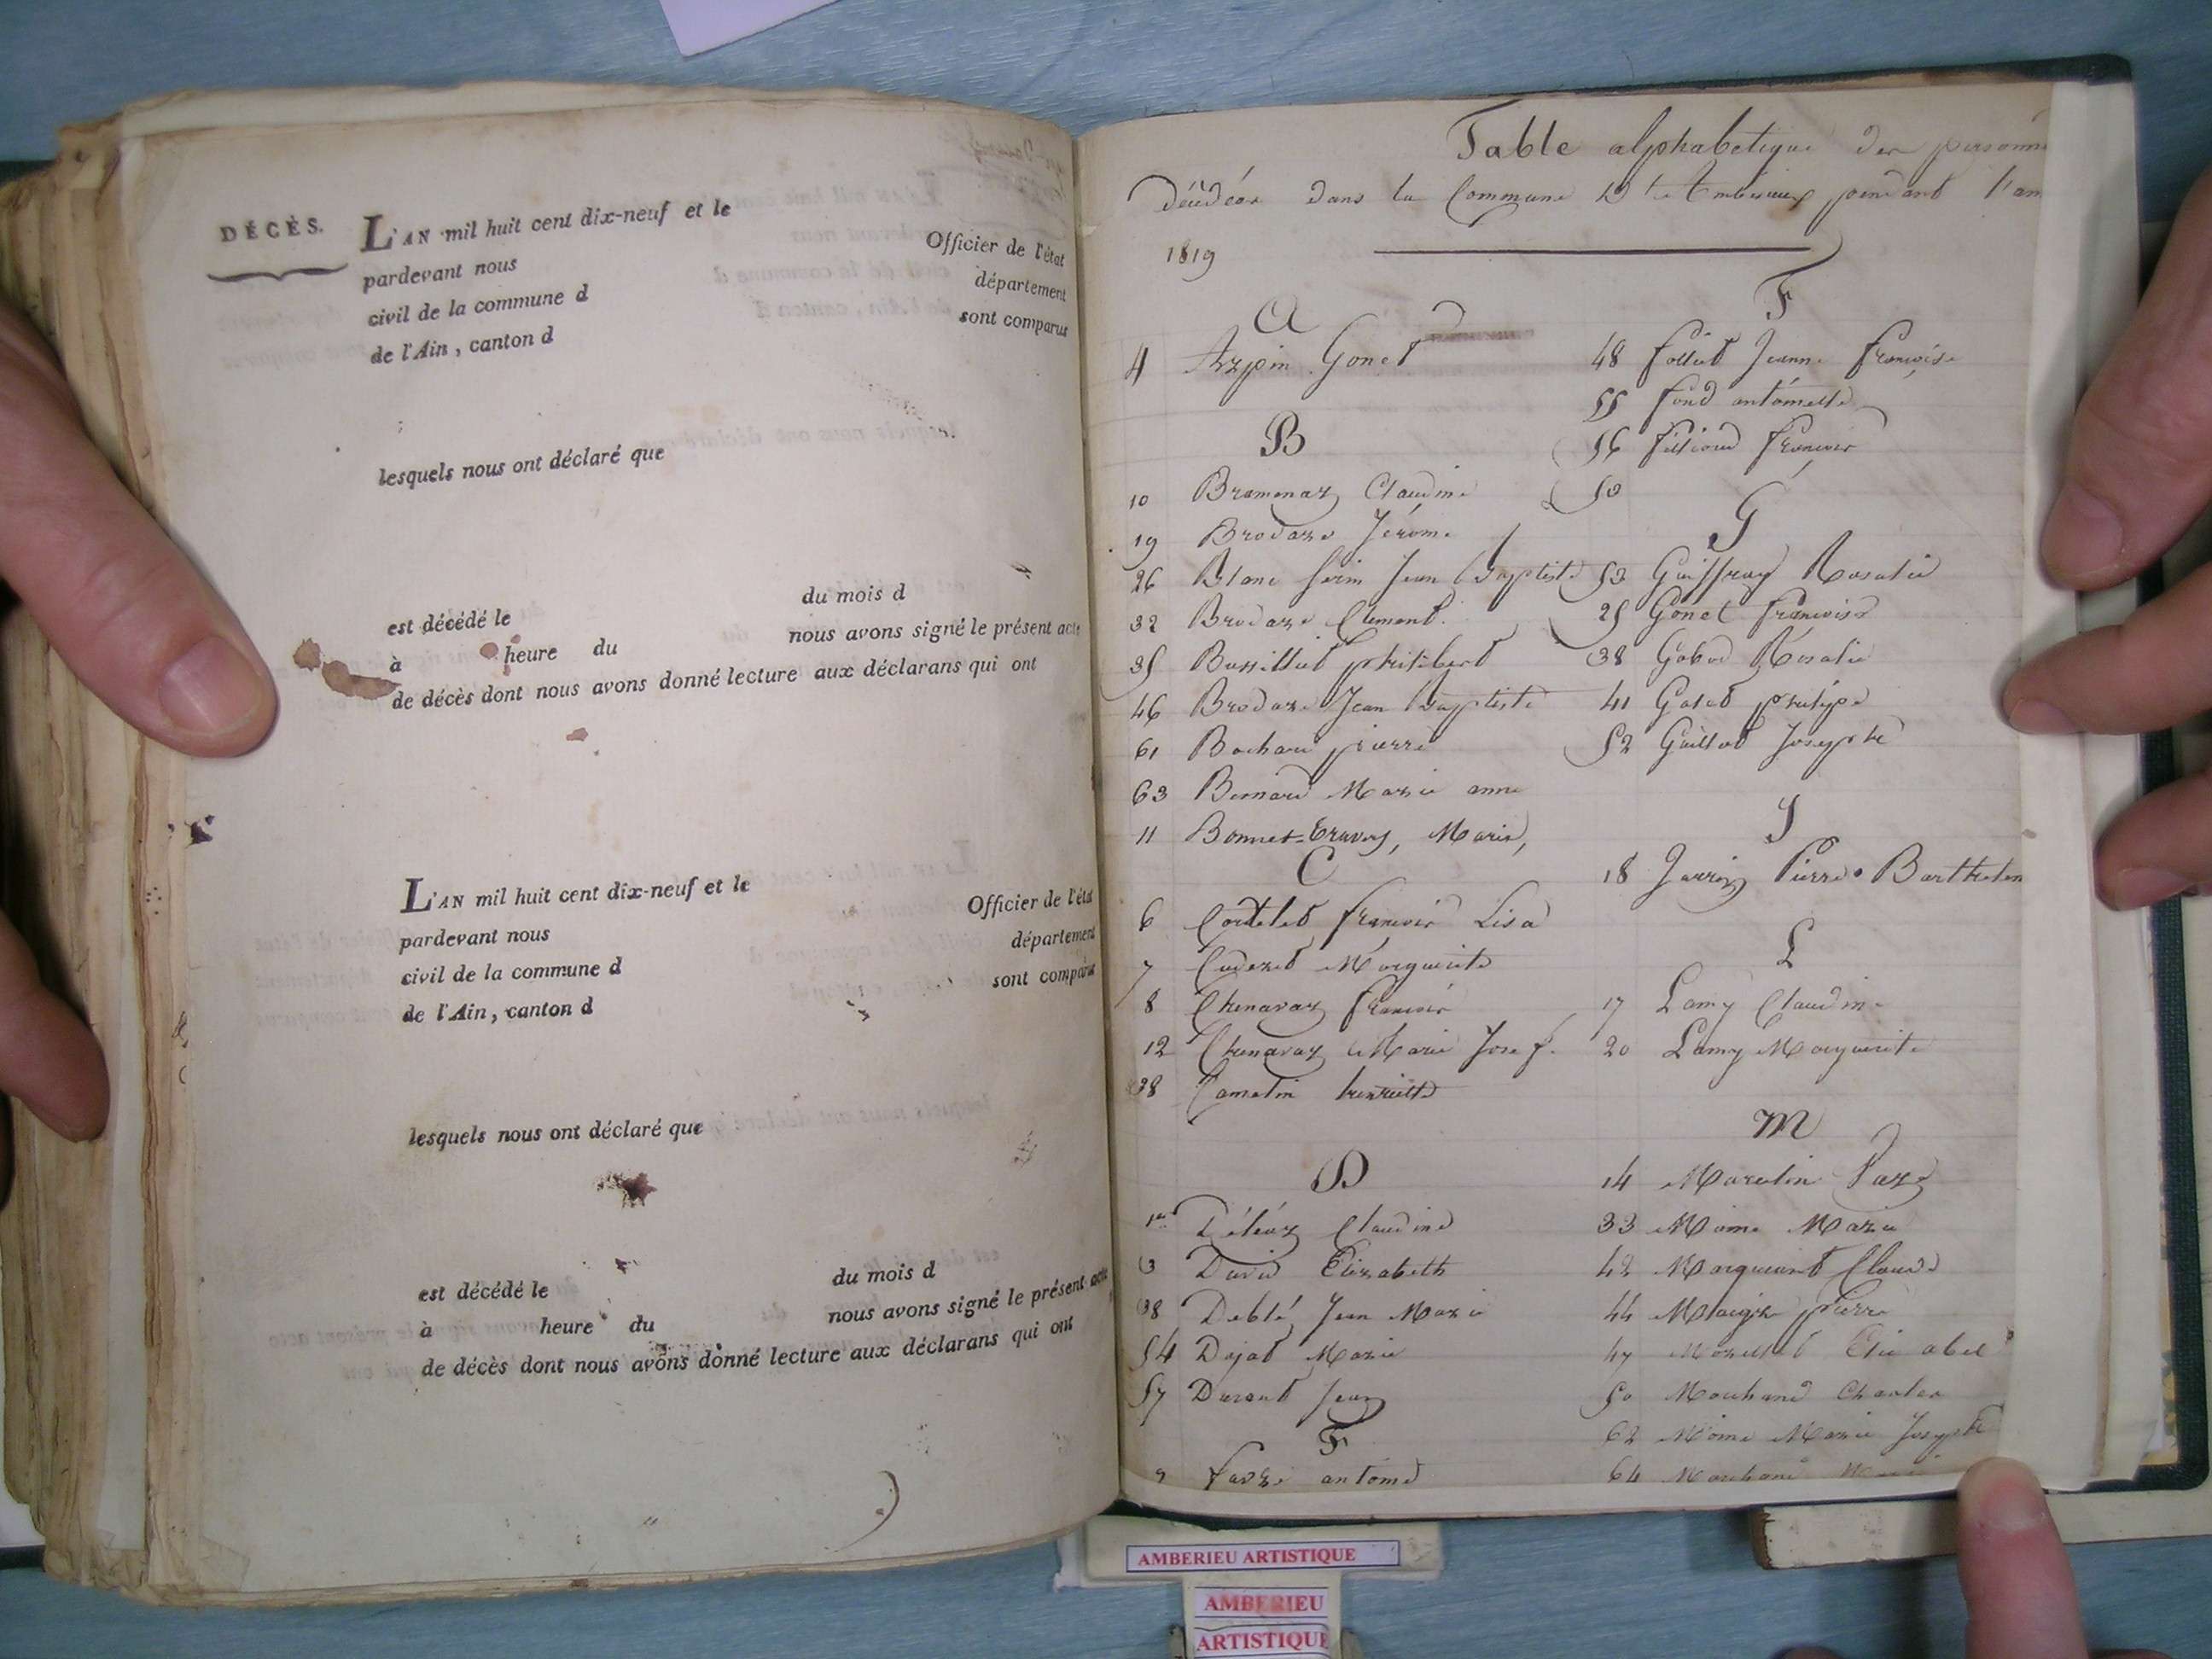 DÉCÈS.
L'AN mil huit cent dix-neuf et le
pardevant nous Officier de l'état
civil de la commune d département
de l'Ain, canton d sont comparus
lesquels nous ont déclaré que
est décédé le du mois d
à heure du nous avons signé le présent acte
de décès dont nous avons donné lecture aux déclarans qui ont
L'AN mil huit cent dix-neuf et le
pardevant nous Officier de l'état
civil de la commune d département
de l'Ain, canton d sont comparus
lesquels nous ont déclaré que
est décédé le du mois d
à heure du nous avons signé le présent acte
de décès dont nous avons donné lecture aux déclarans qui ont
Table alphabetique des personn
dans la Commune pendant l'an
1819
A
4 Arpin Gonet
B
10 Bramenaz Claudine
19 Jérome
26 Blanc Jean Baptiste
32 Clement
35 philibert
46 Jean Baptiste
61 pierre
63 Bernard Marie anne
11 Bonnet-Travers, Marie,
C
6 francois Lisa
7 Marguerite
8 Chenavaz francois
12 Chenavaz Marie Josef.
38 Camelin henriette
D
1er Claudine
3 David Elizabeth
38 Jean Marie
54 Dujat Marie
57 Durant Jean
F
9 favre antoine
F
48 follet Jeanne françoise
55 fond antoinette
56 francois
50
G
53 Guiffray Rosalie
25 Gonet francoise
38 Rosalie
41 philipe
52 Guillot Josephe
J
18 Pierre Barthelem
L
17 Lamy Claudine
20 Lamy Marguerite
M
14
33 Marie
42 Claude
44 pierre
47
50 Marchand Charles
62 Marie Josephe
64 Marchand
AMBERIEU ARTISTIQUE
AMBERIEU
ARTISTIQUE